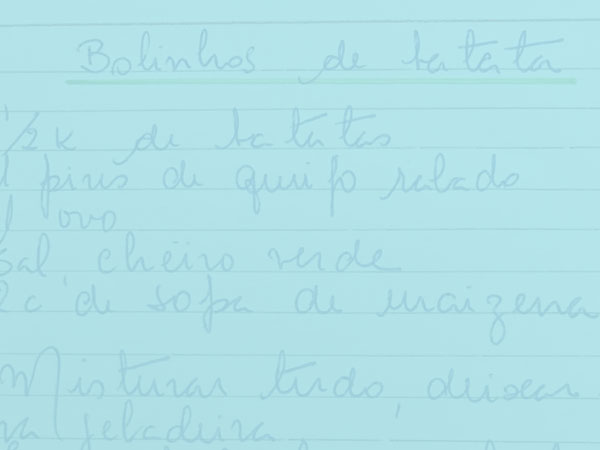 Bolinhos de batata
1/2 k de batatas
1 pires de queijo ralado
1 ovo
sal cheiro verde
2 c de sopa de maizena
Misturar tudo, deixar
na geladeira